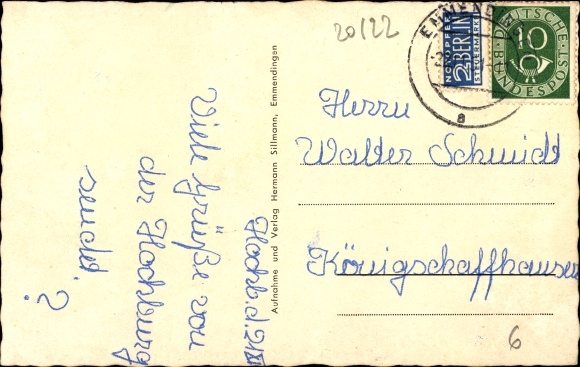 20/22
EMMEND
NOTOPFER
2 BERLIN
STEUERMARKE
DEUTSCHE
BUNDESPOST
10
a
Herrn
Walter Schmidt
Königschaffhausen
6
Aufnahme und Verlag Hermann Sillmann, Emmendingen
Hochb. d. 21
Viele Grüße von
der Hochburg
sendet
?